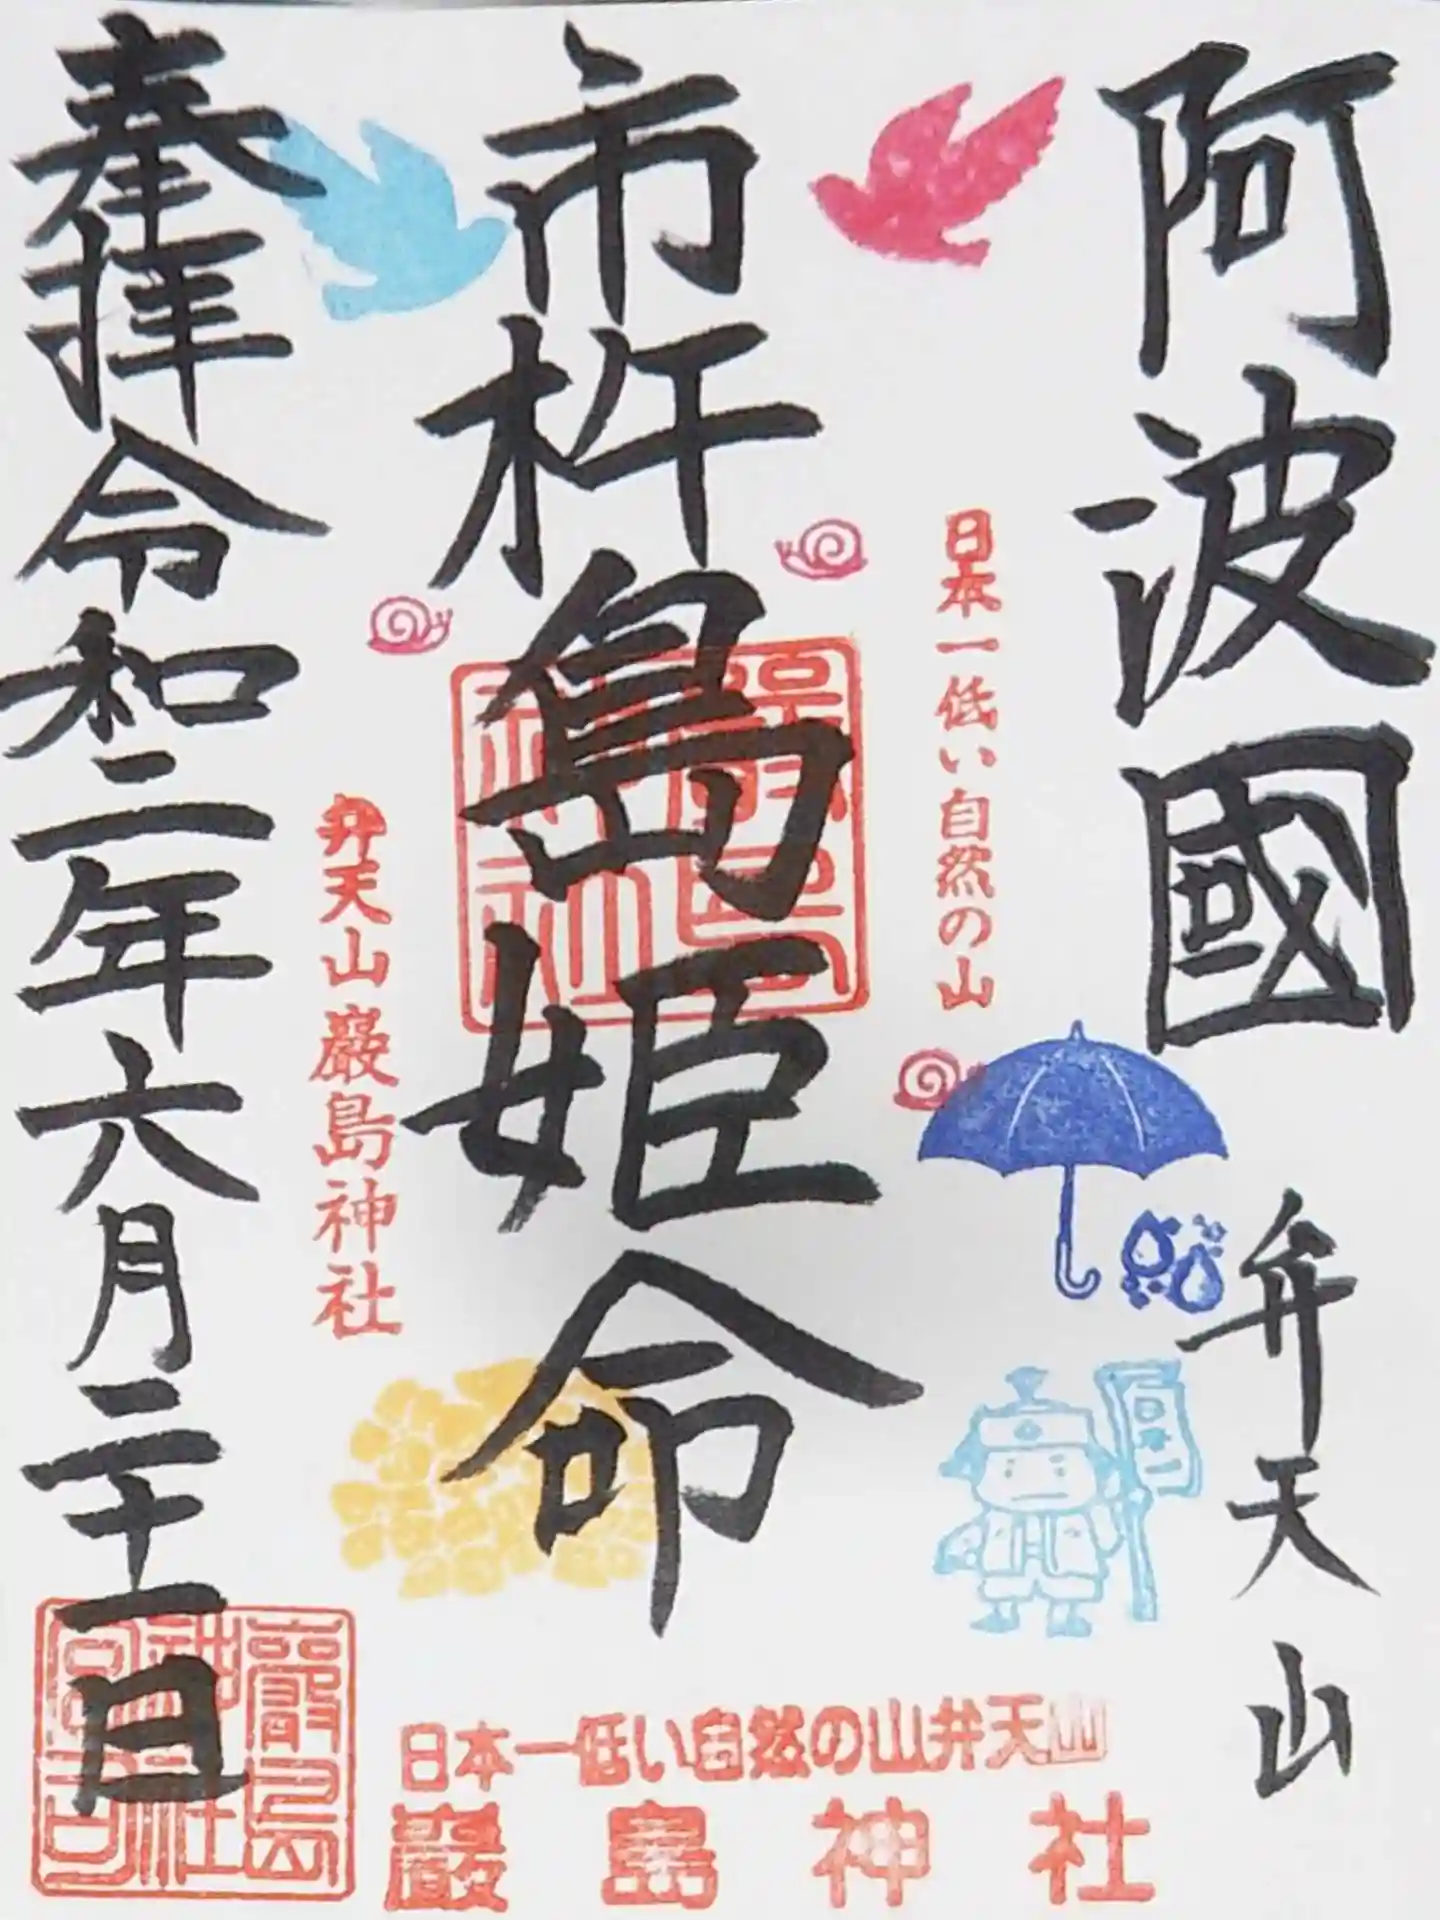 阿波國
弁天山
日本一低い自然の山
市杵島姫命
弁天山巌島神社
奉拝令和二年六月二十一日
日本一低い自然の山弁天山
巌島神社